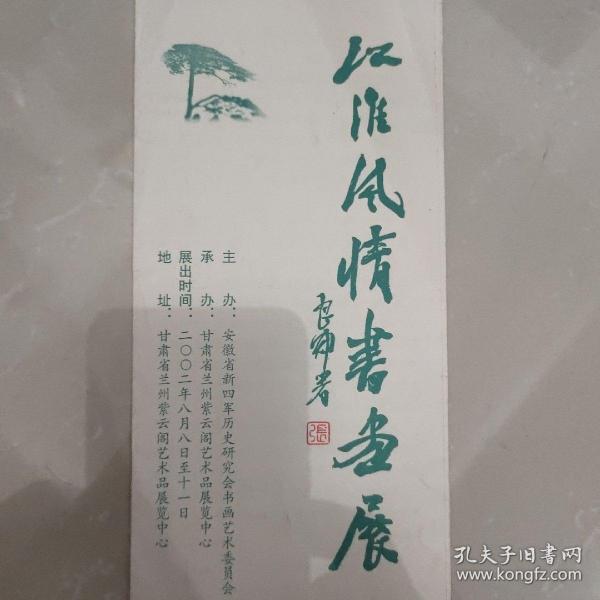 江淮风情书画展
良师署
張
主办：安徽省新四军历史研究会书画艺术委員会
承办：甘肃省兰州紫云阁艺术品展览中心
展出时间：二〇〇二年八月八日至十一日
地址：甘肃省兰州紫云阁艺术品展览中心
孔夫子旧书网
www.kongfz.com